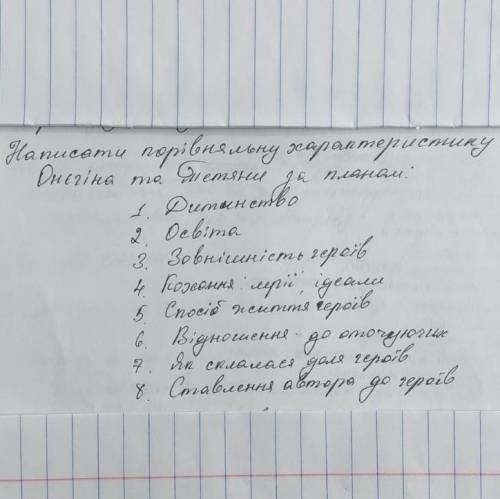 Написати порівняльну характеристику
Онєгіна та Тетяни за планом:
1. Дитинство
2. Освіта
3. Зовнішність героїв
4. Кохання: мрії, ідеали
5. Спосіб життя героїв
6. Відношення до оточуючих
7. Як склалася доля героїв
8. Ставлення автора до героїв